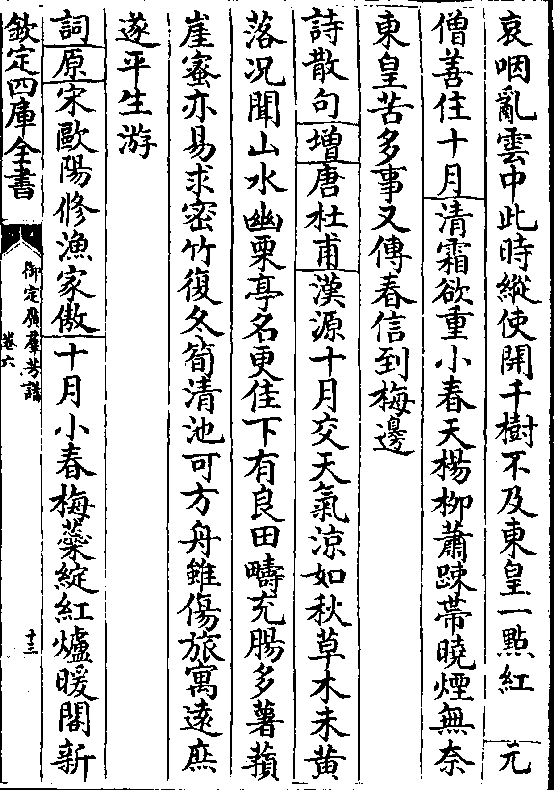 哀咽亂雲中此時縱使開千樹不及東皇一點紅　元
僧善住十月清霜欲重小春天楊柳蕭踈帶曉煙無奈
東皇苦多事又傳春信到梅邊
詩散句增唐杜甫漢源十月交天氣涼如秋草木未黃
落况聞山水幽栗亭名更佳下有良田疇充腸多薯蕷
崖蜜亦易求密竹復冬筍清池可方舟雖傷旅寓遠庶
遂平生游
詞原宋歐陽修漁家傲十月小春梅蘂綻紅爐暖閣新
欽定四庫全書
御定廣羣芳譜
卷六
十三